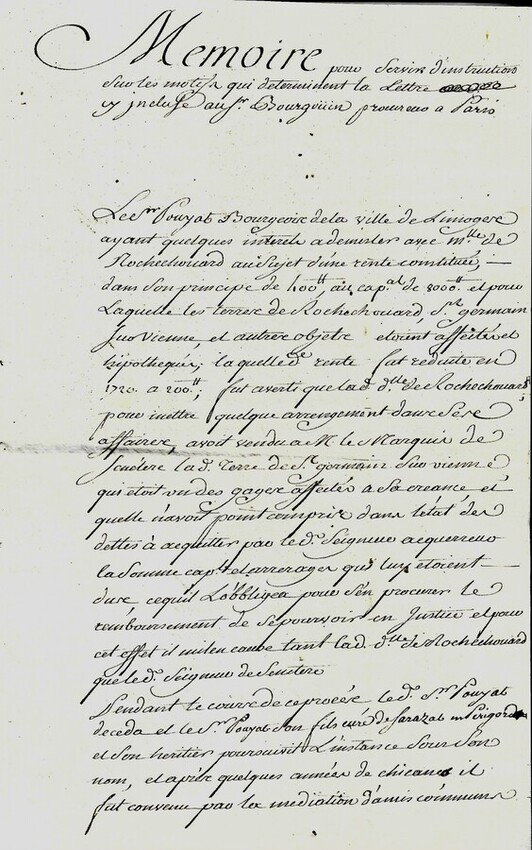 Memoire pour Servir d'instruction
Sur les motifs qui determinent la Lettre
cy jncluse au Sr. Bourgouin procureur a Paris
Le Sr Pouyat Bourgeois de la ville de Limoges
ayant quelques interets a demesler avec mlle de
Rochechouard au Sujet d'une rente constituée,
dans son principe de 400tt au capal de 8000tt et pour
Laquelle les terres de Rochechouard St germain
Sur Vienne et autres objets etoient affectés et
hipothequés; laquelle de rente fut reduite en
1720 a 200tt; fut averti que lad. dlle de Rochechouard
pour mettre quelque arrangement dans Ses
affaires, avoit vendu a M. le Marquis de
Senetere lad. Terre de St germain Sur vienne
qui etoit un des gages affectés a Sa creance et
quelle n'avoit point compris dans l'etat des
dettes a acquitter par led. Seigneur acquereur
la Somme capl et arrerages qui luy etoient
dus, ce qui L'obbligea pour S'en procurer le
remboursement de Se pourvoir en Justice et pour
cet effet il mit en cause tant lad. dlle de Rochechouard
que led. Seigneur de Senetere
Pendant le cours de ce procès led. Sr Pouyat
deceda et le Sr. Pouyat Son fils curé de Sarazat en Perigord
et Son heritier poursuivit L'instance Sous Son
nom, et après quelques années de chicane il
fut convenu par la mediation d'amis communs